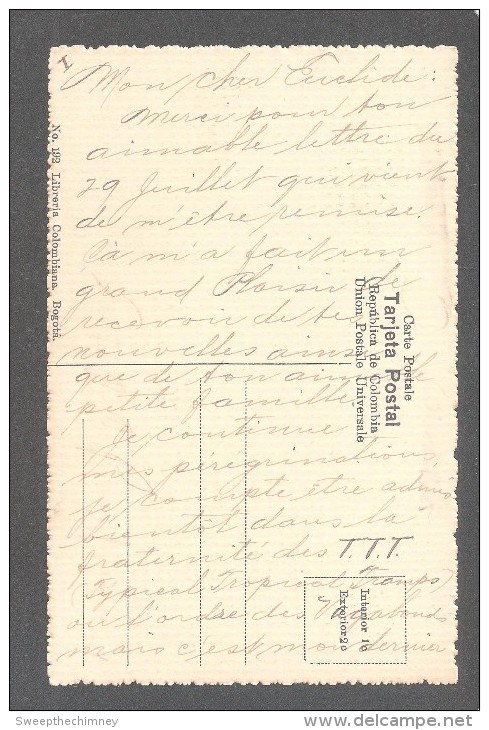 I
Mon cher Euclide:
Merci pour ton
aimable lettre du
29 Juillet qui vient
de m'être remise.
Cà m'a fait un
grand Plaisir de
recevoir de tes
nouvelles ainsi
que de ton aimable
petite famille.
Je continue
mes pérégrinations,
je compte être admis
bientôt dans la
fraternité des T.T.T.
(Typical Tropical Tramps)
ou l'ordre des Vagabonds
mais c'est mon dernier
No. 192 Libreria Colombiana. Bogotá.
Carte Postale
Tarjeta Postal
República de Colombia
Union Postale Universale
Interior 1¢
Exterior 2¢
Sweepthechimney
www.delcampe.net